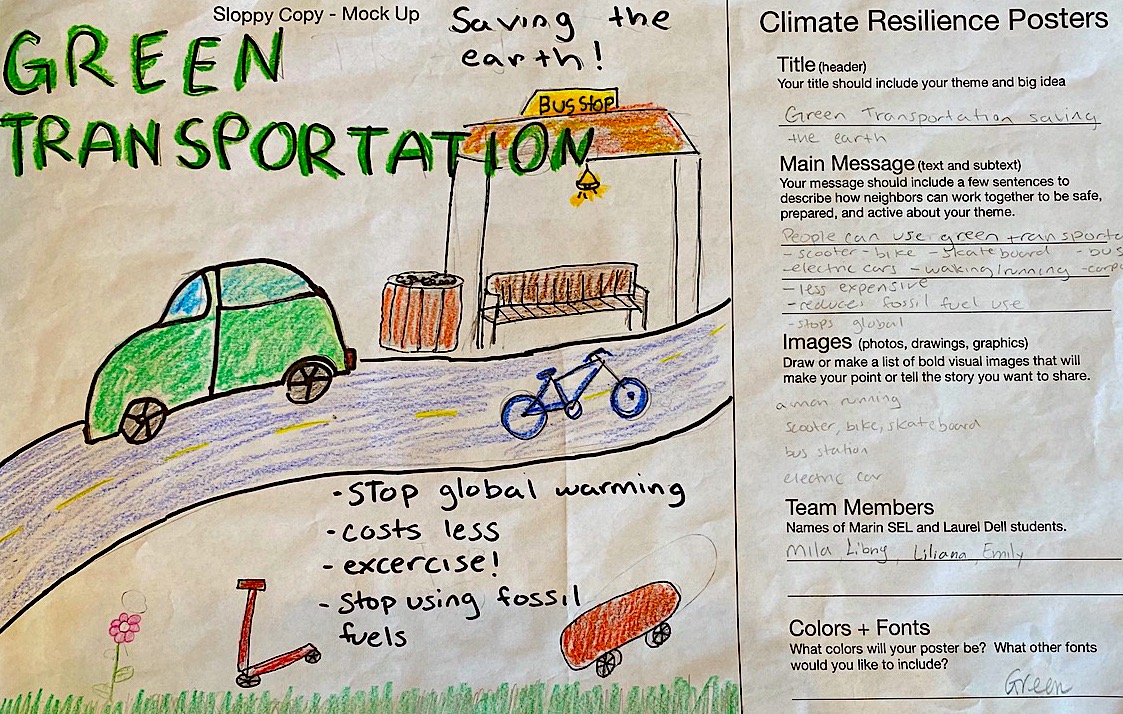 Sloppy Copy - Mock Up
GREEN
TRANSPORTATION
Saving the
earth!
Bus Stop
-Stop global warming
-costs less
-excercise!
-Stop using fossil
fuels
Climate Resilience Posters
Title (header)
Your title should include your theme and big idea
Green Transportation saving
the earth
Main Message (text and subtext)
Your message should include a few sentences to
describe how neighbors can work together to be safe,
prepared, and active about your theme.
People can use green transporta
-scooter -bike -skateboard -bus
-electric cars -waking/running -carpo
-less expensive
-reduces fossil fuel use
-stops global
Images (photos, drawings, graphics)
Draw or make a list of bold visual images that will
make your point or tell the story you want to share.
a man running
scooter, bike, skateboard
bus station
electric car
Team Members
Names of Marin SEL and Laurel Dell students.
Mila, Liliana, Emily
Colors + Fonts
What colors will your poster be? What other fonts
would you like to include?
Green